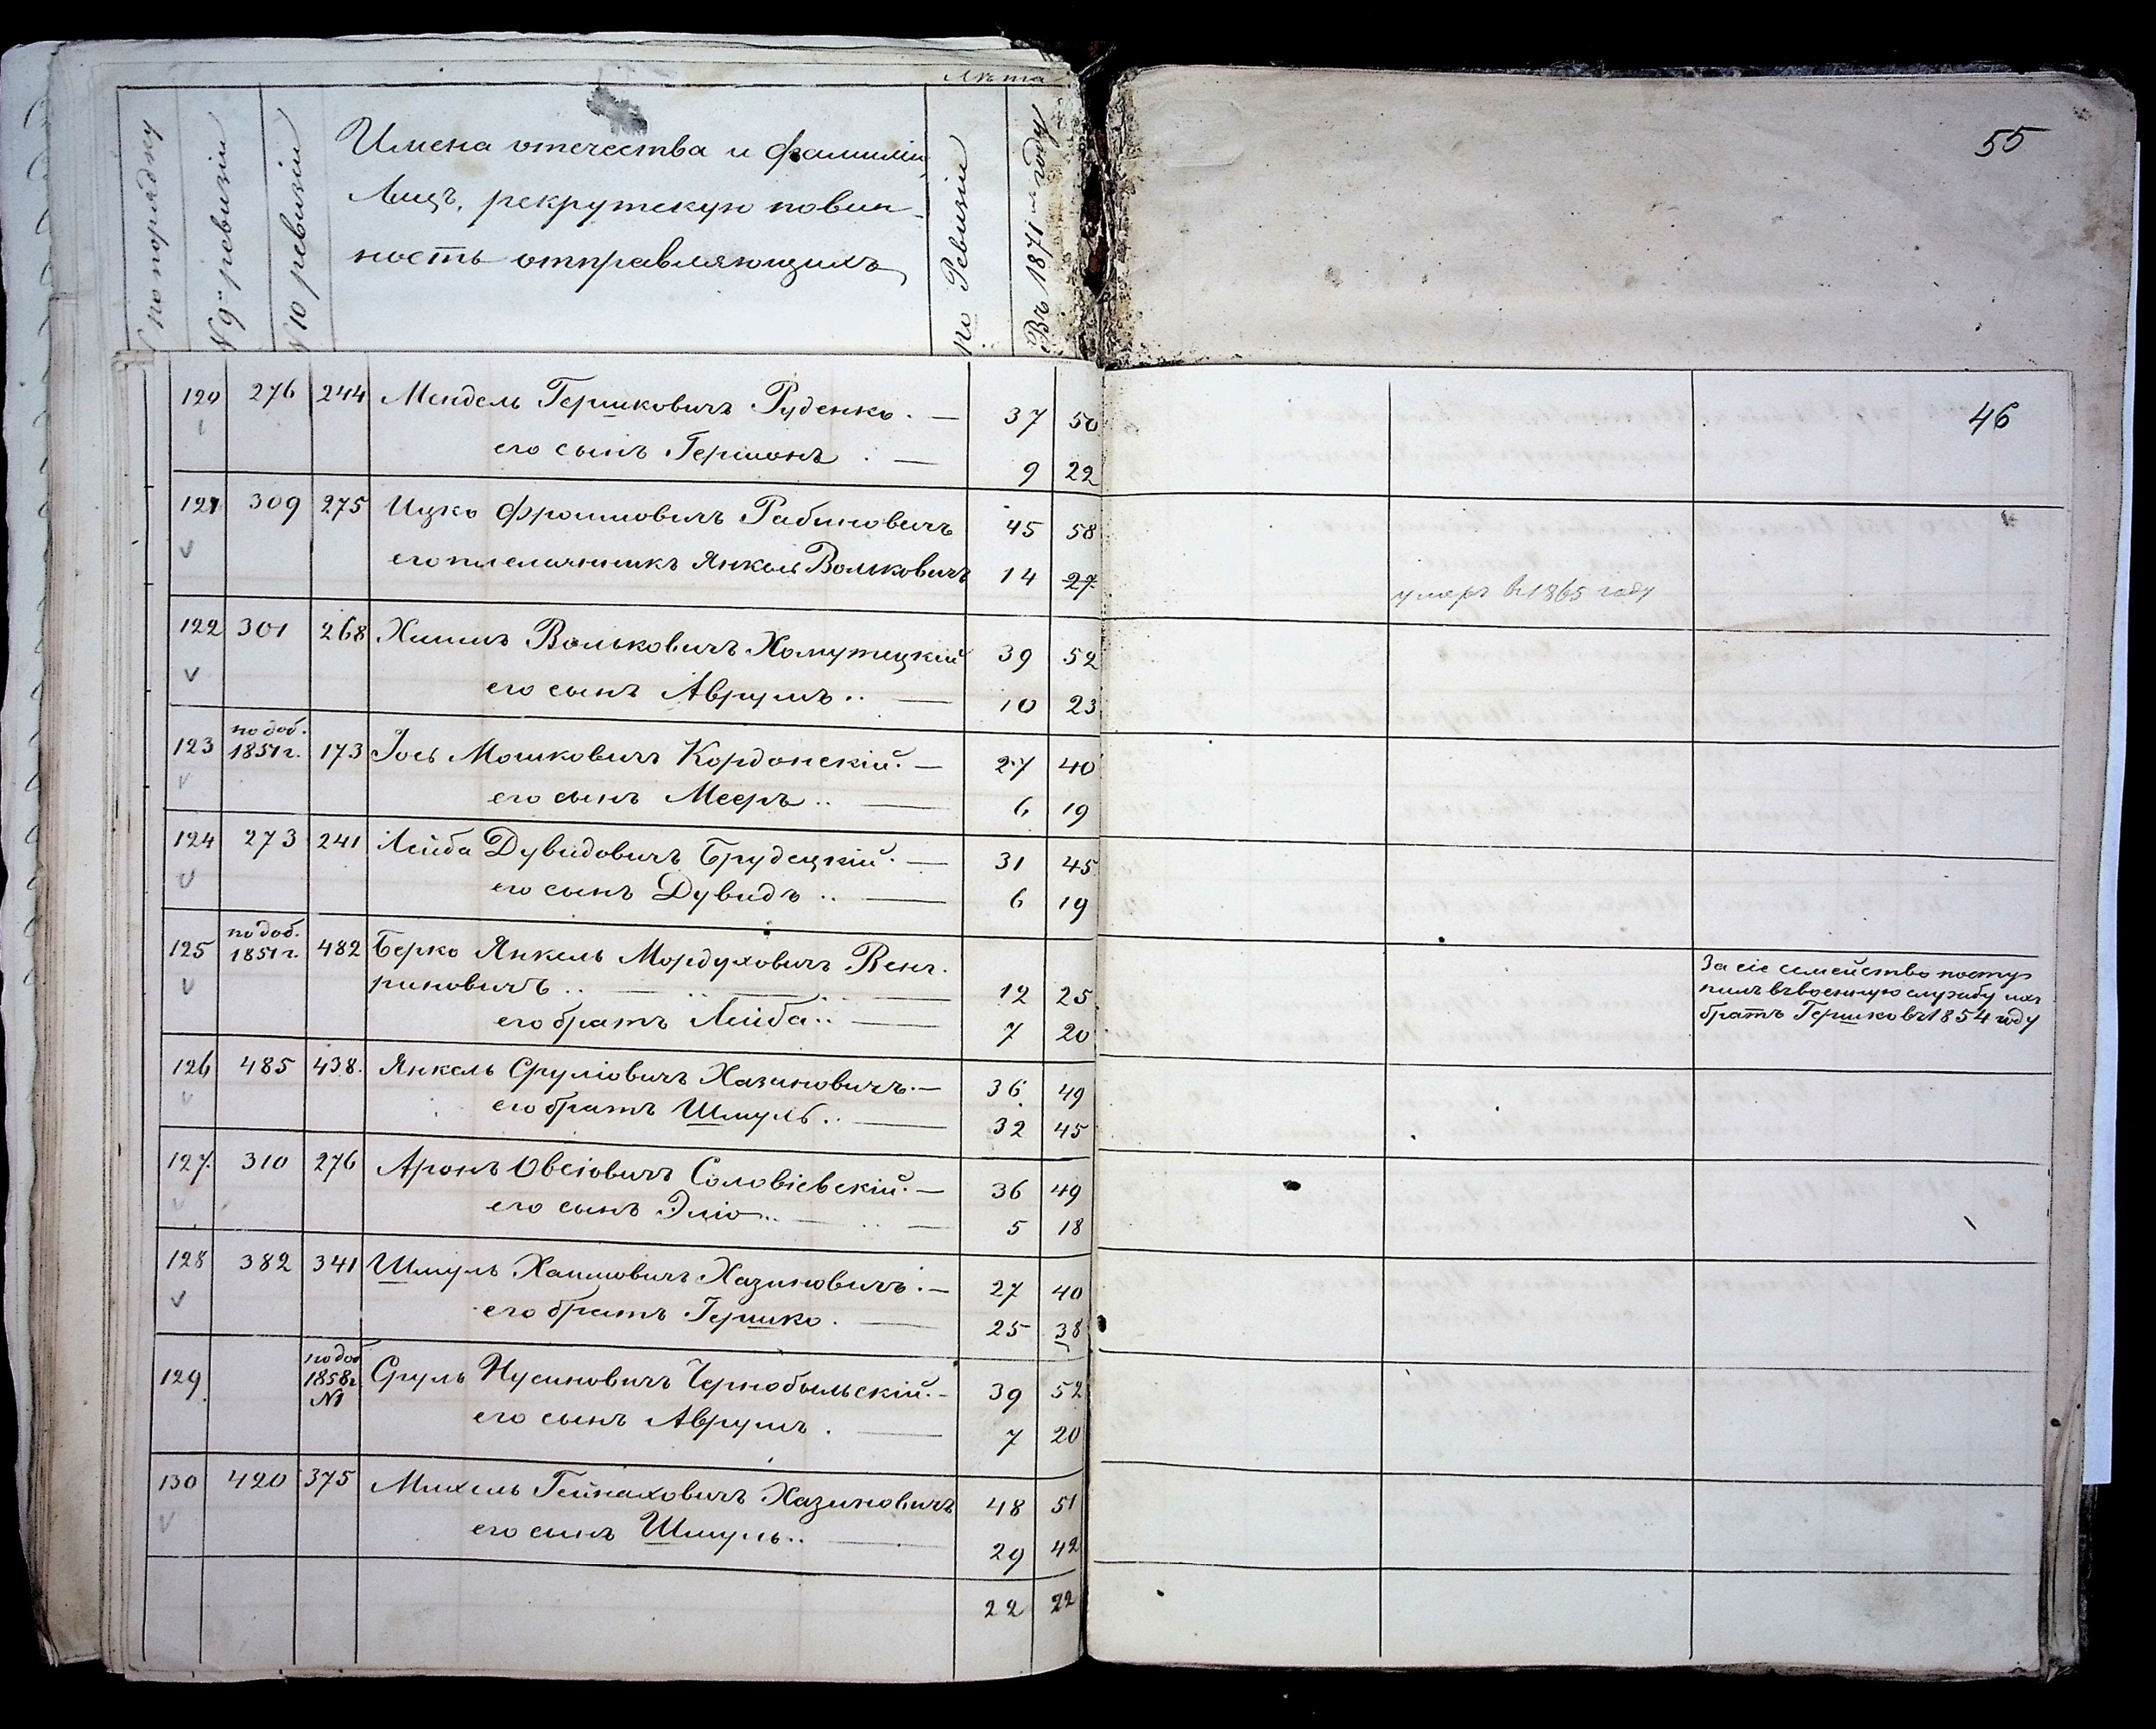 Лѣта
№ по порядку
№ 9й ревизіи
№ 10 ревизіи
Имена отечества и фамиліи
Лицъ, рекрутскую повин-
ность отправляющихъ
по Ревизіи
Въ 1871м году
55
46
120 276 244 Мендель Гершковичъ Руденко. — 37 50
его сынъ Гершонъ . — 9 22
121 309 275 Ицко Фроимовичъ Рабиновичъ 45 58
его племянникъ Янкель Волковичъ 14 27 умеръ в 1865 году
122 301 268 Хаимъ Вольковичъ Хомутецкій 39 52
его сынъ Аврумъ.. — 10 23
123 по доб. 1851 г. 173 Іось Мошковичъ Кордонскій. — 27 40
его сынъ Мееръ.. — 6 19
124 273 241 Лейба Дувидовичъ Брудецкій. — 31 45
его сынъ Дувидъ .. — 6 19
125 по доб. 1851 г. 482 Берко Янкель Мордуховичъ Венг-
риновичъ .. — 12 25
его братъ Лейба.. — 7 20
За сіе семейство посту
пилъ въ военную службу ихъ
братъ Гершко въ 1854 году
126 485 438. Янкель Сруліовичъ Хазиновичъ. — 36 49
его братъ Шмуль.. — 32 45
127. 310 276 Аронъ Овсіовичъ Соловіевскій. — 36 49
его сынъ Эліо.. — 5 18
128 382 341 Шмуль Хаимовичъ Хазиновичъ. — 27 40
его братъ Гершко. — 25 38
129. по доб 1858 г. №1 Сруль Нусиновичъ Чернобыльскій. — 39 52
его сынъ Аврумъ . — 7 20
130 420 375 Михель Гейнаховичъ Хазиновичъ 48 51
его сынъ Шмуль.. — 29 42
22 22